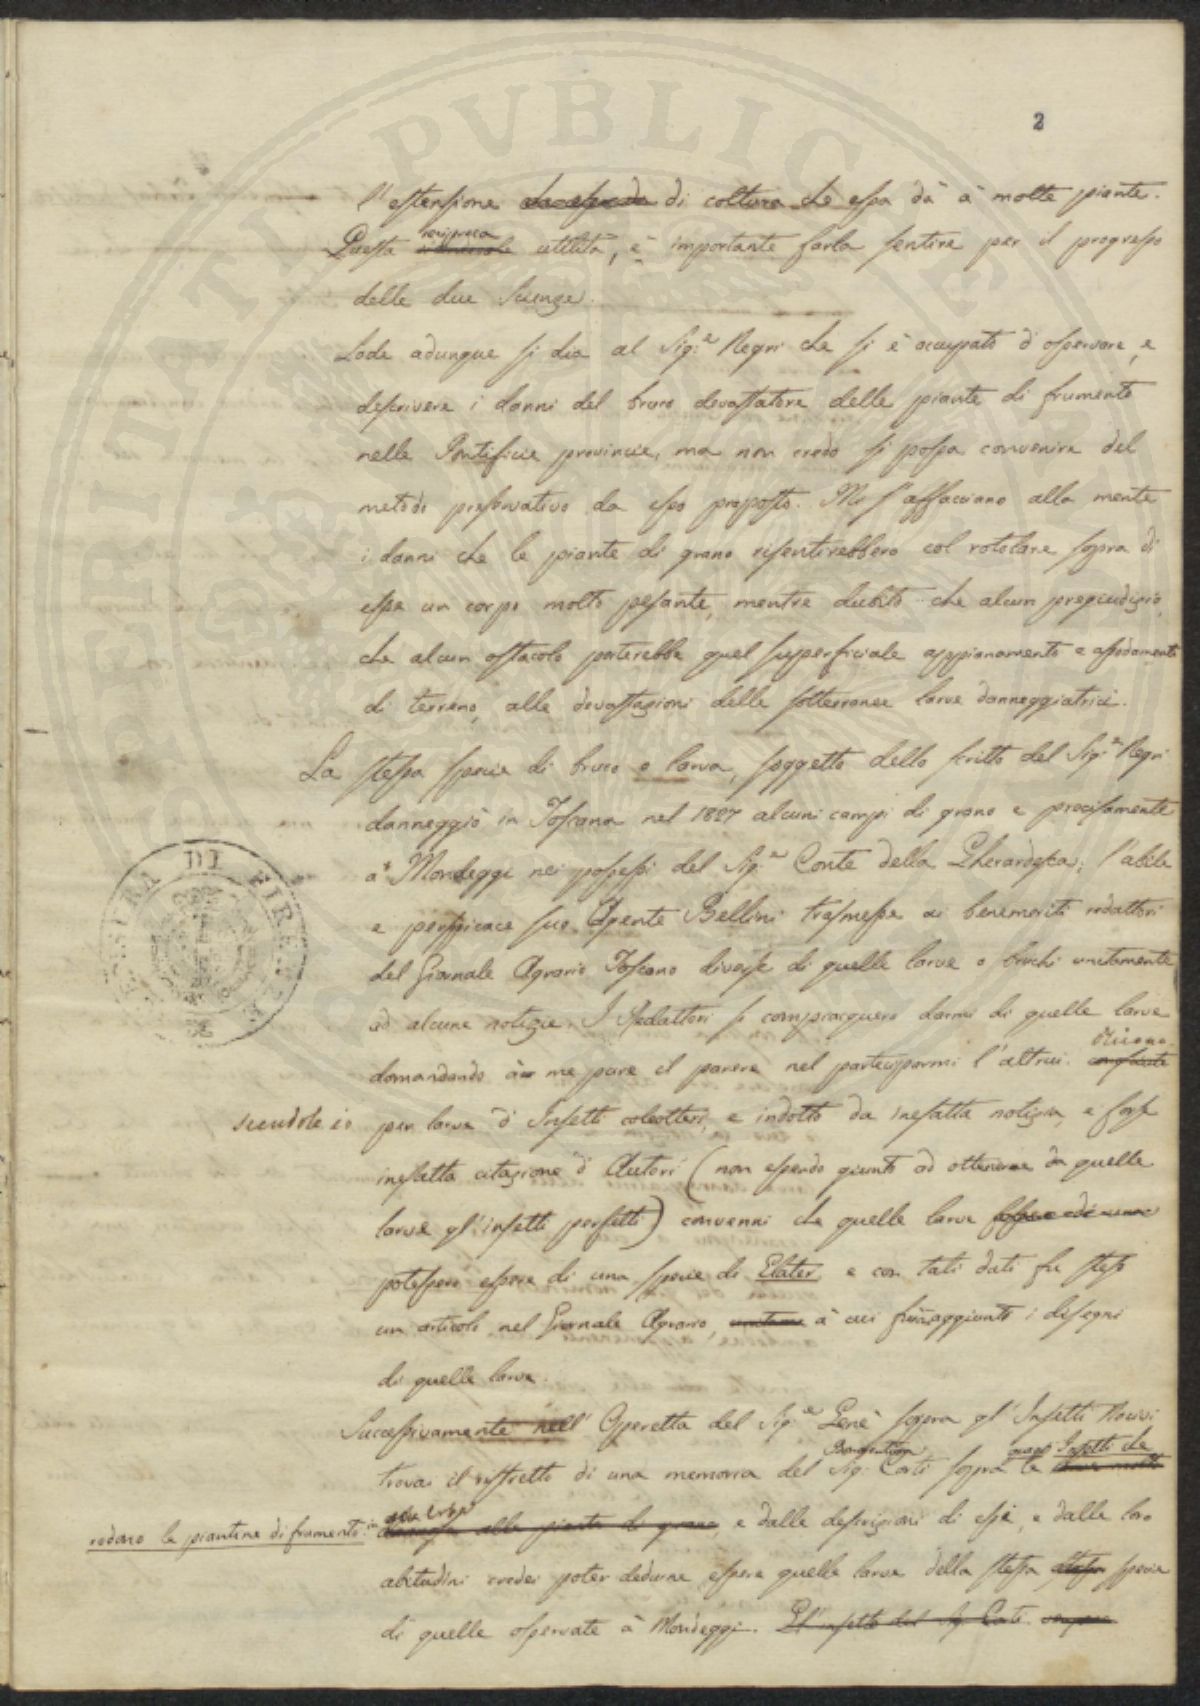 2
l'estensione di coltura che essa dà à molte piante.
Questa reciproca utilità, è importante farla sentire per il progresso
delle due Scienze.
Lode adunque si dia al Sig.e Negri che si è occupato d'osservare, e
descrivere i danni del bruco devastatore delle piante di frumento
nelle Pontificie provincie, ma non credo si possa convenire del
metodo preservativo da esso proposto. Mi s'affacciano alla mente
i danni che le piante di grano risentirebbero col rotolare sopra di
esse un corpo molto pesante, mentre dubito che alcun pregiudizio,
che alcun ostacolo porterebbe quel superficiale appianamento e assodamento
di terreno, alle devastazioni delle sotterranee larve danneggiatrici.
La stessa specie di bruco o larva, soggetto dello scritto del Sig.e Negri
danneggiò in Toscana nel 1827 alcuni campi di grano e precisamente
a Mondeggi nei possessi del Sig.e Conte della Gherardesca; l'abile
e perspicace suo Agente Bellini trasmesse ai benemeriti redattori
del Giornale Agrario Toscano diverse di quelle larve o bruchi unitamente
ad alcune notizie. I Redattori si compiacquero darmi di quelle larve
domandando à me pure il parere nel parteciparmi l'altrui.
per larve d'Insetti coleotteri, e indotto da inesatta notizia, e forse
inesatta citazione d'Autori (non essendo giunto ad ottenere da quelle
larve gl'insetti perfetti) convenni che quelle larve
potessero essere di una specie di Elater, e con tali dati fu steso
un articolo nel Giornale Agrario, à cui furon aggiunti i disegni
di quelle larve.
Successivamente nell' Operetta del Sig.e Genè sopra gl'Insetti Nocivi
trovai il ristretto di una memoria del Sig. Bonaventura Corti sopra Insetti che
rodono le piantine di frumento in e dalle descrizioni di essi, e dalle loro
abitudini credei poter dedurne essere quelle larve della stessa specie
di quelle osservate à Mondeggi. Gl'insetti del Sig. Corti
DI FIRENZE
VERITATI PVBLICAE